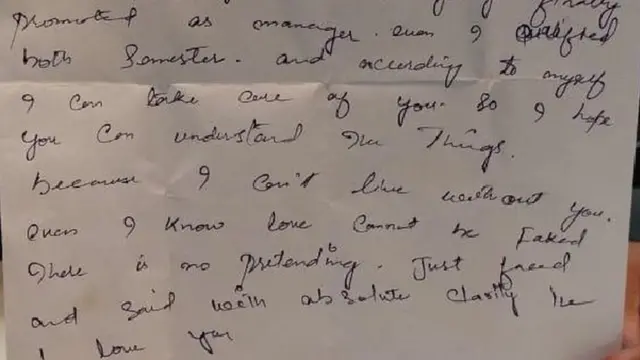 finally
promoted as manager. even I qualified
both Semester. and according to myself
I can take care of you. So I hope
you can understand the Things.
because I can't live without you.
even I know love cannot be Faked
There is no pretending. Just
and said with absolute clarity
I love you